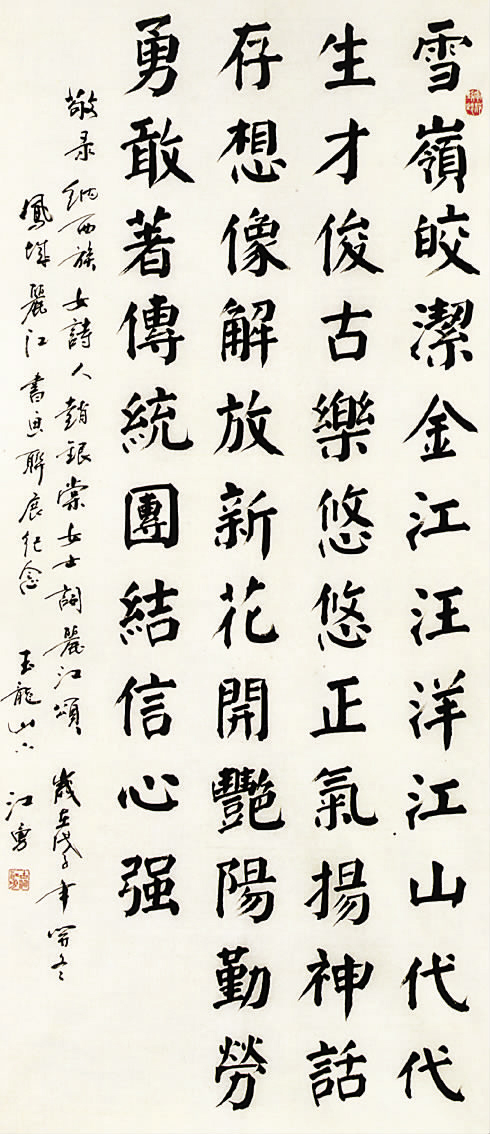 雪嶺皎潔金江汪洋江山代代
生才俊古樂悠悠正氣揚神話
存想像解放新花開艷陽勤勞
勇敢著傳統團結信心强
敬录納西族女詩人趙銀棠女士詞麗江頌 歲在戊子年
鳳城麗江書画聯展纪念 玉龍山下 江勇